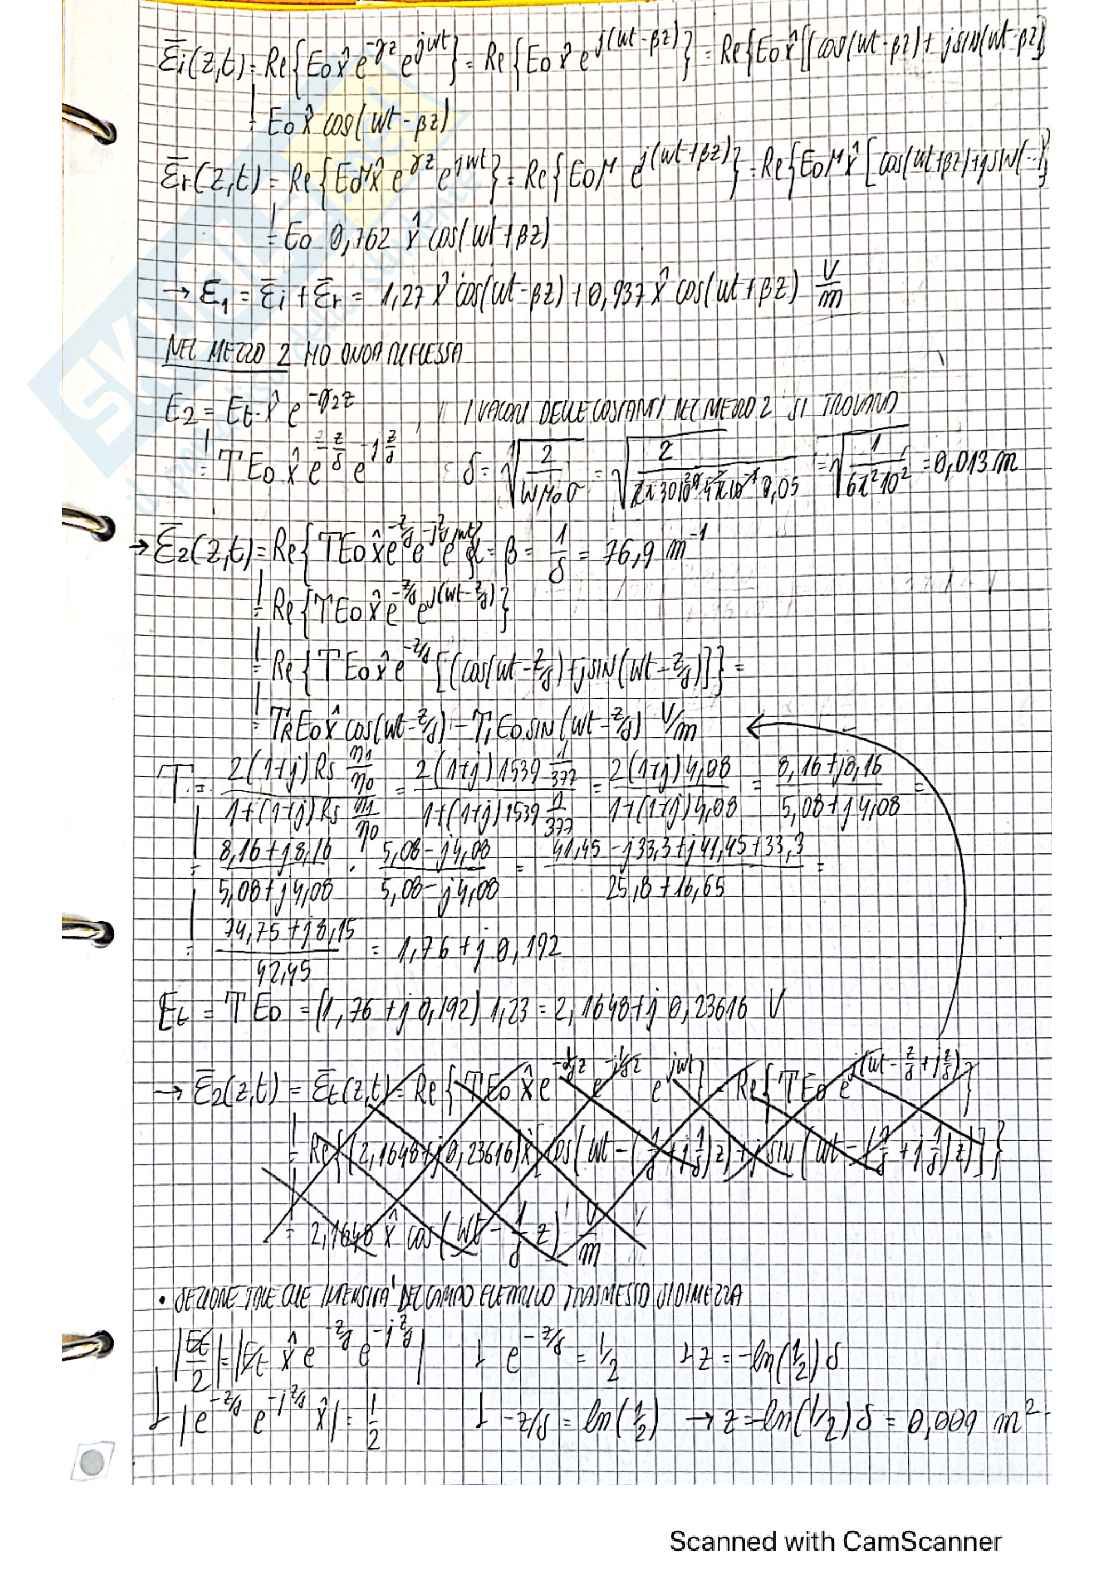 Ēi(z,t) = Re{E₀ x̂ e^{-γz} e^{jωt}} = Re{E₀ x̂ e^{j(ωt-βz)}} = Re{E₀ x̂ [(cos(ωt-βz) + jsin(ωt-βz)]}
= E₀ x̂ cos(ωt-βz)
Ēr(z,t) = Re{E₀Γ x̂ e^{γz} e^{jωt}} = Re{E₀Γ e^{j(ωt+βz)}} = Re{E₀Γ x̂ [cos(ωt+βz)+jsin(...)]}
= E₀ 0,762 x̂ cos(ωt+βz)
→ E₁ = Ēi + Ēr = 1,27 x̂ cos(ωt-βz) + 0,937 x̂ cos(ωt+βz) V/m
NEL MEZZO 2 HO ONDA RIFLESSA
E₂ = Et x̂ e^{-γ₂z} I VALORI DELLE COSTANTI NEL MEZZO 2 SI TROVANO
= T E₀ x̂ e^{-z/δ} e^{-jz/δ} δ = √(2/(ωμ₀σ)) = = √(1/(6π²10²)) = 0,013 m
→ Ē₂(z,t) = Re{T E₀ x̂ e^{-z/δ} e^{-jz/δ} e^{jωt}} α = β = 1/δ = 76,9 m⁻¹
= Re{T E₀ x̂ e^{-z/δ} e^{j(ωt-z/δ)}}
= Re{T E₀ x̂ e^{-z/δ} [(cos(ωt-z/δ)+jSIN(ωt-z/δ)]} =
= T_R E₀ x̂ cos(ωt-z/δ) - T_I E₀ SIN(ωt-z/δ) V/m
T = (2(1+j)Rs η₁/η₀)/(1+(1+j)Rs η₁/η₀) = (2(1+j)1539 1/377)/(1+(1+j)1539 1/377) = (2(1+j)4,08)/(1+(1+j)4,08) = (8,16+j8,16)/(5,08+j4,08) =
= (8,16+j8,16)/(5,08+j4,08) · (5,08-j4,08)/(5,08-j4,08) = (41,45-j33,3+j41,45+33,3)/(25,8+16,65) =
= (74,75+j8,15)/42,45 = 1,76+j 0,192
Et = T E₀ = (1,76+j 0,192) 1,23 = 2,1648+j 0,23616 V
→ Ē₂(z,t) = Ēt(z,t) = Re{T E₀ x̂ e^{-1/δ z} e^{-j1/δ z} e^{jωt}} = Re{T E₀ e^{j(ωt-z/δ+jz/δ)}}
= Re{(2,1648+j0,23616) x̂ [cos(ωt-(1/δ+j1/δ)z)+jSIN(ωt-(1/δ+j1/δ)z)]}
= 2,1648 x̂ cos(ωt-1/δ z) V/m
• SEZIONE TALE CHE INTENSITÀ DEL CAMPO ELETTRICO TRASMESSO SI DIMEZZA
|Et/2| = |Et x̂ e^{-z/δ} e^{-jz/δ}| ↳ e^{-z/δ} = 1/2 ↳ z = -ln(1/2) δ
↳ |e^{-z/δ} e^{-jz/δ} x̂| = 1/2 ↳ -z/δ = ln(1/2) → z = -ln(1/2) δ = 0,009 m²
Scanned with CamScanner